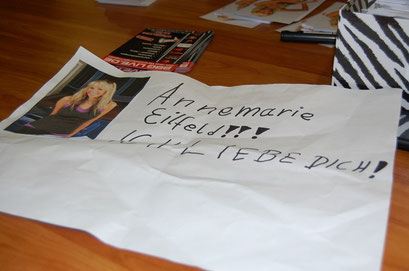 Annemarie
Eilfeld!!!
LIEBE DICH!